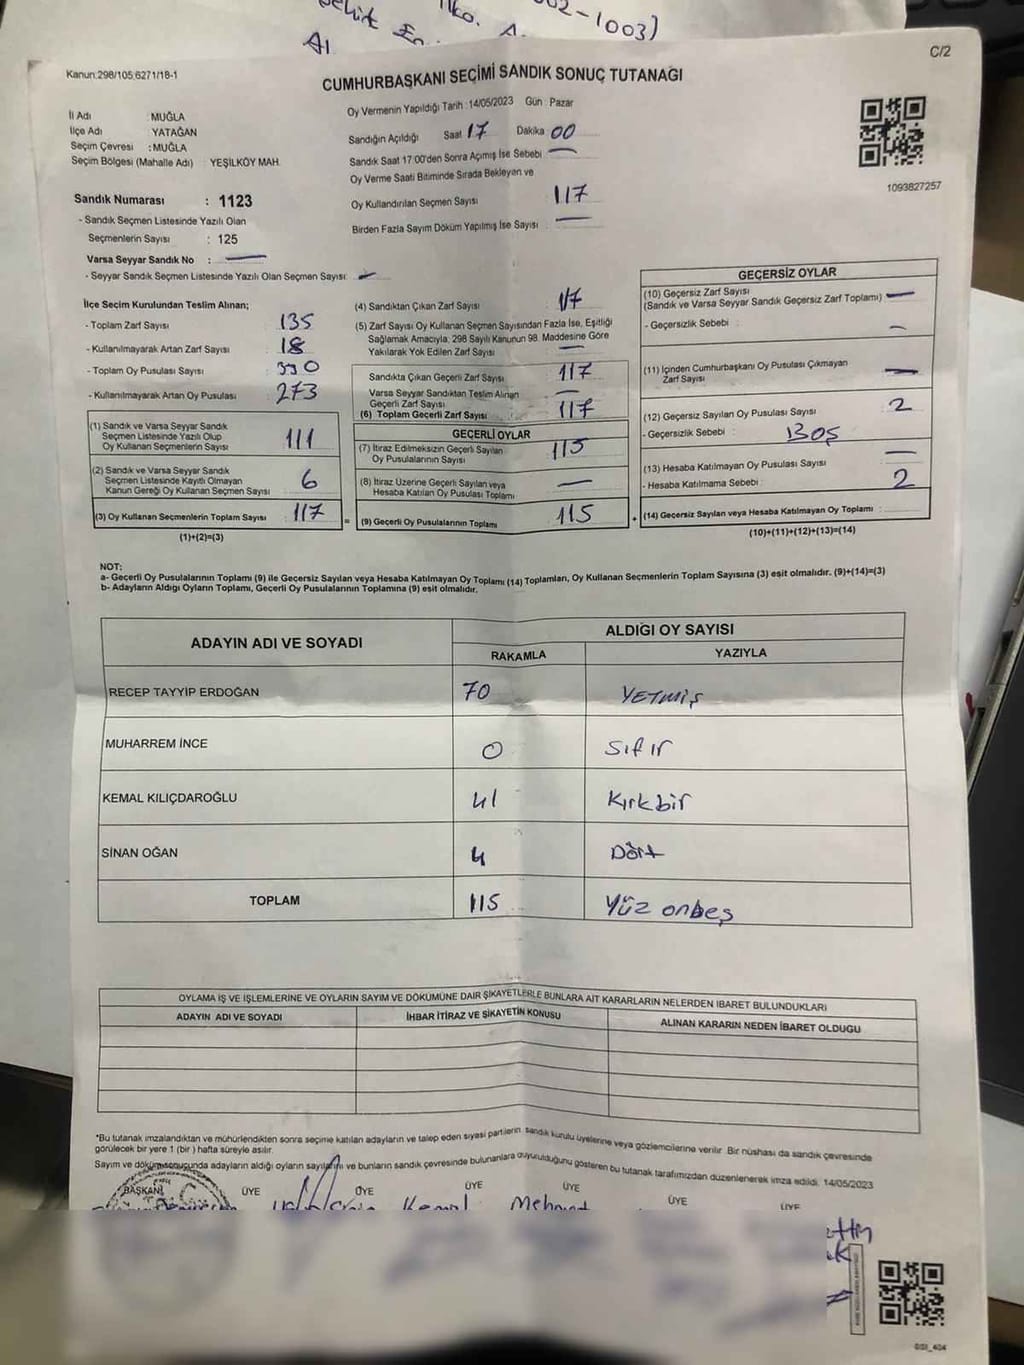 Şehit En.
lko.
A.
002-1003)
A1
C/2
Kanun:298/105,6271/18-1
CUMHURBAŞKANI SEÇİMİ SANDIK SONUÇ TUTANAĞI
İl Adı : MUĞLA
İlçe Adı : YATAĞAN
Seçim Çevresi : MUĞLA
Seçim Bölgesi (Mahalle Adı) : YEŞİLKÖY MAH.
Sandık Numarası : 1123
- Sandık Seçmen Listesinde Yazılı Olan
Seçmenlerin Sayısı : 125
Varsa Seyyar Sandık No : —
- Seyyar Sandık Seçmen Listesinde Yazılı Olan Seçmen Sayısı: —
Oy Vermenin Yapıldığı Tarih :14/05/2023 Gün : Pazar
Sandığın Açıldığı Saat 17 Dakika 00
Sandık Saat 17:00'den Sonra Açımış İse Sebebi —
Oy Verme Saati Bitiminde Sırada Bekleyen ve
Oy Kullandırılan Seçmen Sayısı 117
Birden Fazla Sayım Döküm Yapılmış İse Sayısı : —
1093827257
İlçe Seçim Kurulundan Teslim Alınan;
- Toplam Zarf Sayısı : 135
- Kullanılmayarak Artan Zarf Sayısı : 18
- Toplam Oy Pusulası Sayısı : 390
- Kullanılmayarak Artan Oy Pusulası : 273
(1) Sandık ve Varsa Seyyar Sandık
Seçmen Listesinde Yazılı Olup
Oy Kullanan Seçmenlerin Sayısı 111
(2) Sandık ve Varsa Seyyar Sandık
Seçmen Listesinde Kayıtlı Olmayan
Kanun Gereği Oy Kullanan Seçmen Sayısı 6
(3) Oy Kullanan Seçmenlerin Toplam Sayısı 117
(1)+(2)=(3)
(4) Sandıktan Çıkan Zarf Sayısı 117
(5) Zarf Sayısı Oy Kullanan Seçmen Sayısından Fazla İse, Eşitliği
Sağlamak Amacıyla, 298 Sayılı Kanunun 98. Maddesine Göre
Yakılarak Yok Edilen Zarf Sayısı —
Sandıkta Çıkan Geçerli Zarf Sayısı 117
Varsa Seyyar Sandıktan Teslim Alınan
Geçerli Zarf Sayısı —
(6) Toplam Geçerli Zarf Sayısı 117
GEÇERLİ OYLAR
(7) İtiraz Edilmeksizin Geçerli Sayılan
Oy Pusulalarının Sayısı 115
(8) İtiraz Üzerine Geçerli Sayılan veya
Hesaba Katılan Oy Pusulası Toplamı —
= (9) Geçerli Oy Pusulalarının Toplamı 115
GEÇERSİZ OYLAR
(10) Geçersiz Zarf Sayısı
(Sandık ve Varsa Seyyar Sandık Geçersiz Zarf Toplamı) —
- Geçersizlik Sebebi : —
(11) İçinden Cumhurbaşkanı Oy Pusulası Çıkmayan
Zarf Sayısı —
(12) Geçersiz Sayılan Oy Pusulası Sayısı 2
- Geçersizlik Sebebi : BOŞ
(13) Hesaba Katılmayan Oy Pusulası Sayısı —
- Hesaba Katılmama Sebebi : 2
+ (14) Geçersiz Sayılan veya Hesaba Katılmayan Oy Toplamı :
(10)+(11)+(12)+(13)=(14)
NOT:
a- Geçerli Oy Pusulalarının Toplamı (9) ile Geçersiz Sayılan veya Hesaba Katılmayan Oy Toplamı (14) Toplamları, Oy Kullanan Seçmenlerin Toplam Sayısına (3) eşit olmalıdır. (9)+(14)=(3)
b- Adayların Aldığı Oyların Toplamı, Geçerli Oy Pusulalarının Toplamına (9) eşit olmalıdır.
ADAYIN ADI VE SOYADI ALDIĞI OY SAYISI
RAKAMLA YAZIYLA
RECEP TAYYİP ERDOĞAN 70 YETMİŞ
MUHARREM İNCE 0 Sıfır
KEMAL KILIÇDAROĞLU 41 Kırkbir
SİNAN OĞAN 4 Dört
TOPLAM 115 Yüz onbeş
OYLAMA İŞ VE İŞLEMLERİNE VE OYLARIN SAYIM VE DÖKÜMÜNE DAİR ŞİKAYETLERLE BUNLARA AİT KARARLARIN NELERDEN İBARET BULUNDUKLARI
ADAYIN ADI VE SOYADI İHBAR İTİRAZ VE ŞİKAYETİN KONUSU ALINAN KARARIN NEDEN İBARET OLDUĞU
*Bu tutanak imzalandıktan ve mühürlendikten sonra seçime katılan adayların ve talep eden siyasi partilerin sandık kurulu üyelerine veya gözlemcilerine verilir. Bir nüshası da sandık çevresinde
görülecek bir yere 1 (bir) hafta süreyle asılır.
Sayım ve döküm sonucunda adayların aldığı oyların sayılarını ve bunların sandık çevresinde bulunanlara duyurulduğunu gösteren bu tutanak tarafımızdan düzenlenerek imza edildi. 14/05/2023
BAŞKAN ÜYE ÜYE ÜYE ÜYE ÜYE ÜYE
Kemal Mehmet